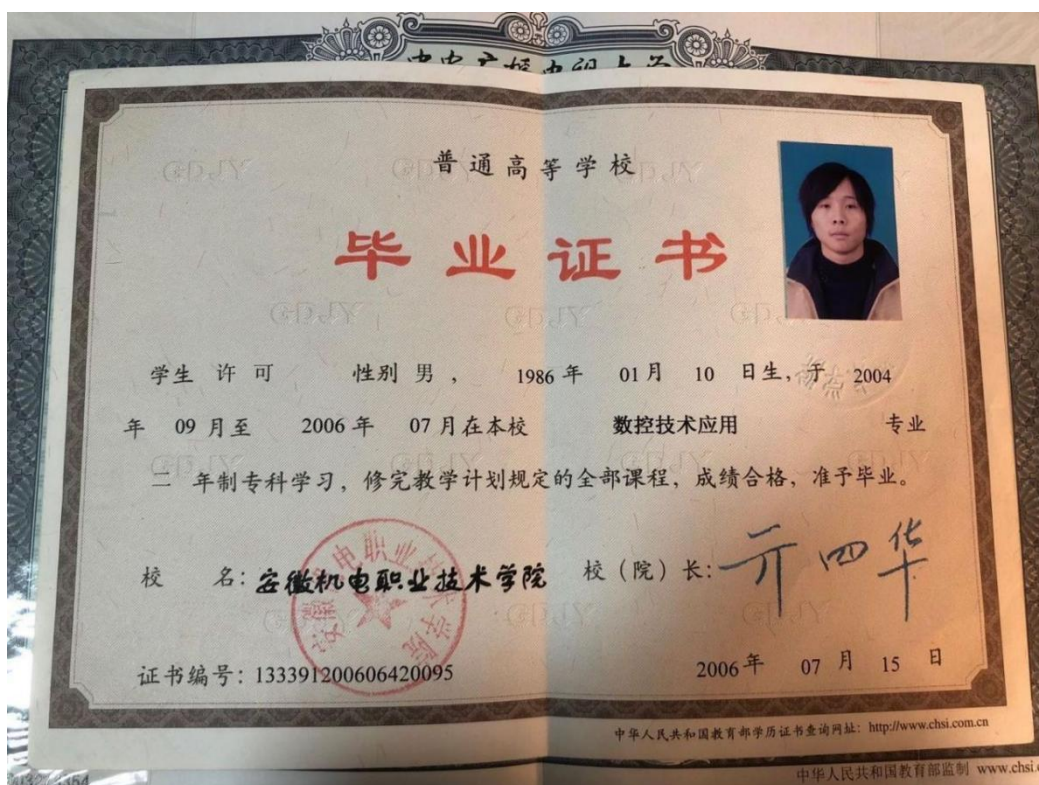 中央广播电视大学
普通高等学校
毕业证书
学生 许可 性别 男 , 1986 年 01 月 10 日生, 于 2004
年 09 月至 2006 年 07 月在本校 数控技术应用 专业
二 年制专科学习，修完教学计划规定的全部课程，成绩合格，准予毕业。
校 名：安徽机电职业技术学院 校（院）长：
安徽机电职业技术学院
证书编号：133391200606420095 2006 年 07 月 15 日
中华人民共和国教育部学历证书查询网址：http://www.chsi.com.cn
中华人民共和国教育部监制 www.chsi.c
GDJY